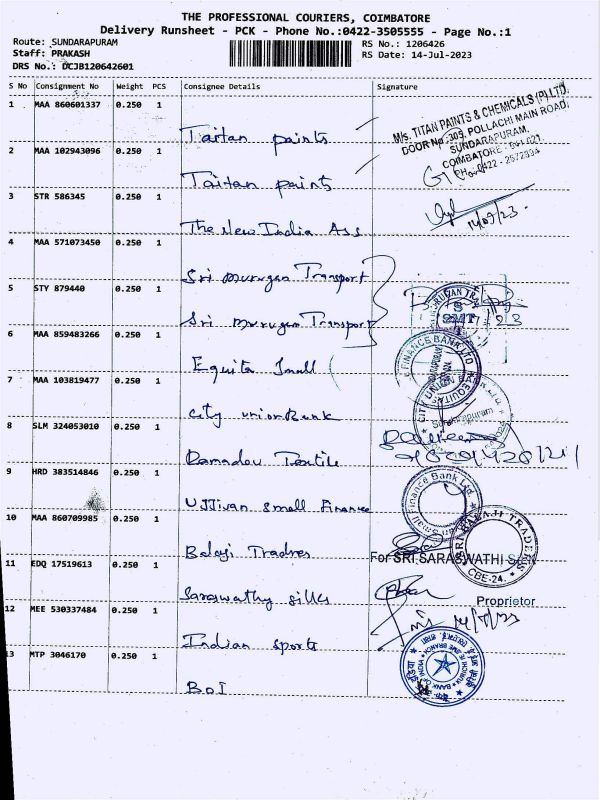 THE PROFESSIONAL COURIERS, COIMBATORE
Delivery Runsheet - PCK - Phone No.:0422-3505555 - Page No.:1
Route: SUNDARAPURAM
RS No.: 1206426
Staff: PRAKASH
RS Date: 14-Jul-2023
DRS No.: DCJB120642601
S No Consignment No Weight PCS Consignee Details Signature
1 MAA 860601337 0.250 1
Taitan paints
M/s. TITAN PAINTS & CHEMICALS (P) LTD,
DOOR No. 309, POLLACHI MAIN ROAD,
SUNDARAPURAM,
COIMBATORE - 641 021.
2 MAA 102943096 0.250 1
Taitan paints
3 STR 586345 0.250 1
The New India Ass
14/07/23.
4 MAA 571073450 0.250 1
Sri murugan Transport
5 STY 879440 0.250 1
Sri murugan Transport
SMT
6 MAA 859483266 0.250 1
Equita Small
FINANCE BANK LTD
7 MAA 103819477 0.250 1
City union Bank
CITY UNION
Sundarapuram
8 SLM 324053010 0.250 1
Ramadev Textile
9 HRD 383514846 0.250 1
UJJivan small Finance
Small Finance Bank Ltd.
10 MAA 860709985 0.250 1
Balaji Tradres
SRI BALAJI TRADERS
CBE-24.
11 EDQ 17519613 0.250 1
For SRI SARASWATHI
Saraswathy silks
Proprietor
12 MEE 530337484 0.250 1
Indian sports
14/7/23
13 MTP 3046170 0.250 1
BOI